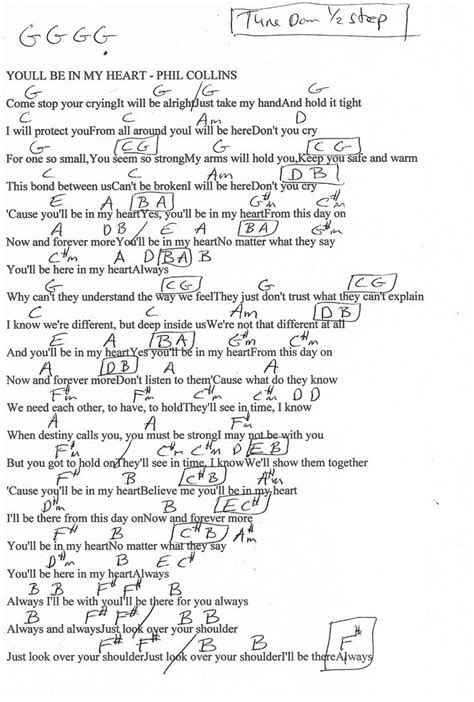 G G G G
Tune Down 1/2 step
YOULL BE IN MY HEART - PHIL COLLINS
G G /G G
Come stop your cryingIt will be alrightJust take my handAnd hold it tight
C C Am D
I will protect youFrom all around youI will be hereDon't you cry
G C G G C G
For one so small,You seem so strongMy arms will hold you,Keep you safe and warm
C C Am D B
This bond between usCan't be brokenI will be hereDon't you cry
E A B A G#m C#m
'Cause you'll be in my heartYes, you'll be in my heartFrom this day on
A D B / E A B A G#m
Now and forever moreYou'll be in my heartNo matter what they say
C#m A D B A B
You'll be here in my heartAlways
G C G G C G
Why can't they understand the way we feelThey just don't trust what they can't explain
C C Am D B
I know we're different, but deep inside usWe're not that different at all
E A B A G#m C#m
And you'll be in my heartYes you'll be in my heartFrom this day on
A D B A A
Now and forever moreDon't listen to them'Cause what do they know
F#m F#m C#m D D
We need each other, to have, to holdThey'll see in time, I know
A A F#m
When destiny calls you, you must be strongI may not be with you
F#m / C#m C#m D E B
But you got to hold onThey'll see in time, I knowWe'll show them together
F# B C# B A#m
'Cause you'll be in my heartBelieve me you'll be in my heart
D#m B E C#
I'll be there from this day onNow and forever more
F# B C# B A#m
You'll be in my heartNo matter what they say
D#m B E C#
You'll be here in my heartAlways
B B F# F# B B
Always I'll be with youI'll be there for you always
F# F# B B
Always and alwaysJust look over your shoulder
F# F# B B F#
Just look over your shoulderJust look over your shoulderI'll be thereAlways